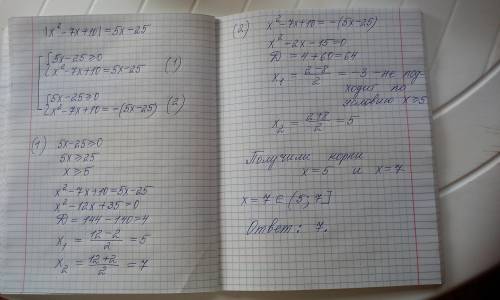 |x²-7x+10|=5x-25
{5x-25≥0
x²-7x+10=5x-25 (1)
{5x-25≥0
x²-7x+10=-(5x-25) (2)
(1) 5x-25≥0
5x≥25
x≥5
x²-7x+10=5x-25
x²-12x+35=0
D=144-140=4
x₁=(12-2)/2=5
x₂=(12+2)/2=7
(2) x²-7x+10=-(5x-25)
x²-2x-15=0
D=4+60=64
x₁=(2-8)/2=-3-не под-
ходит по
условию x≥5
x₂=(2+8)/2=5
Получили корни
x=5 и x=7
x=7∈(5;7]
Ответ: 7.